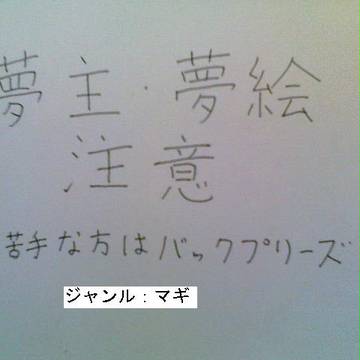 夢主・夢絵
注意
苦手な方はバックプリーズ
ジャンル：マギ